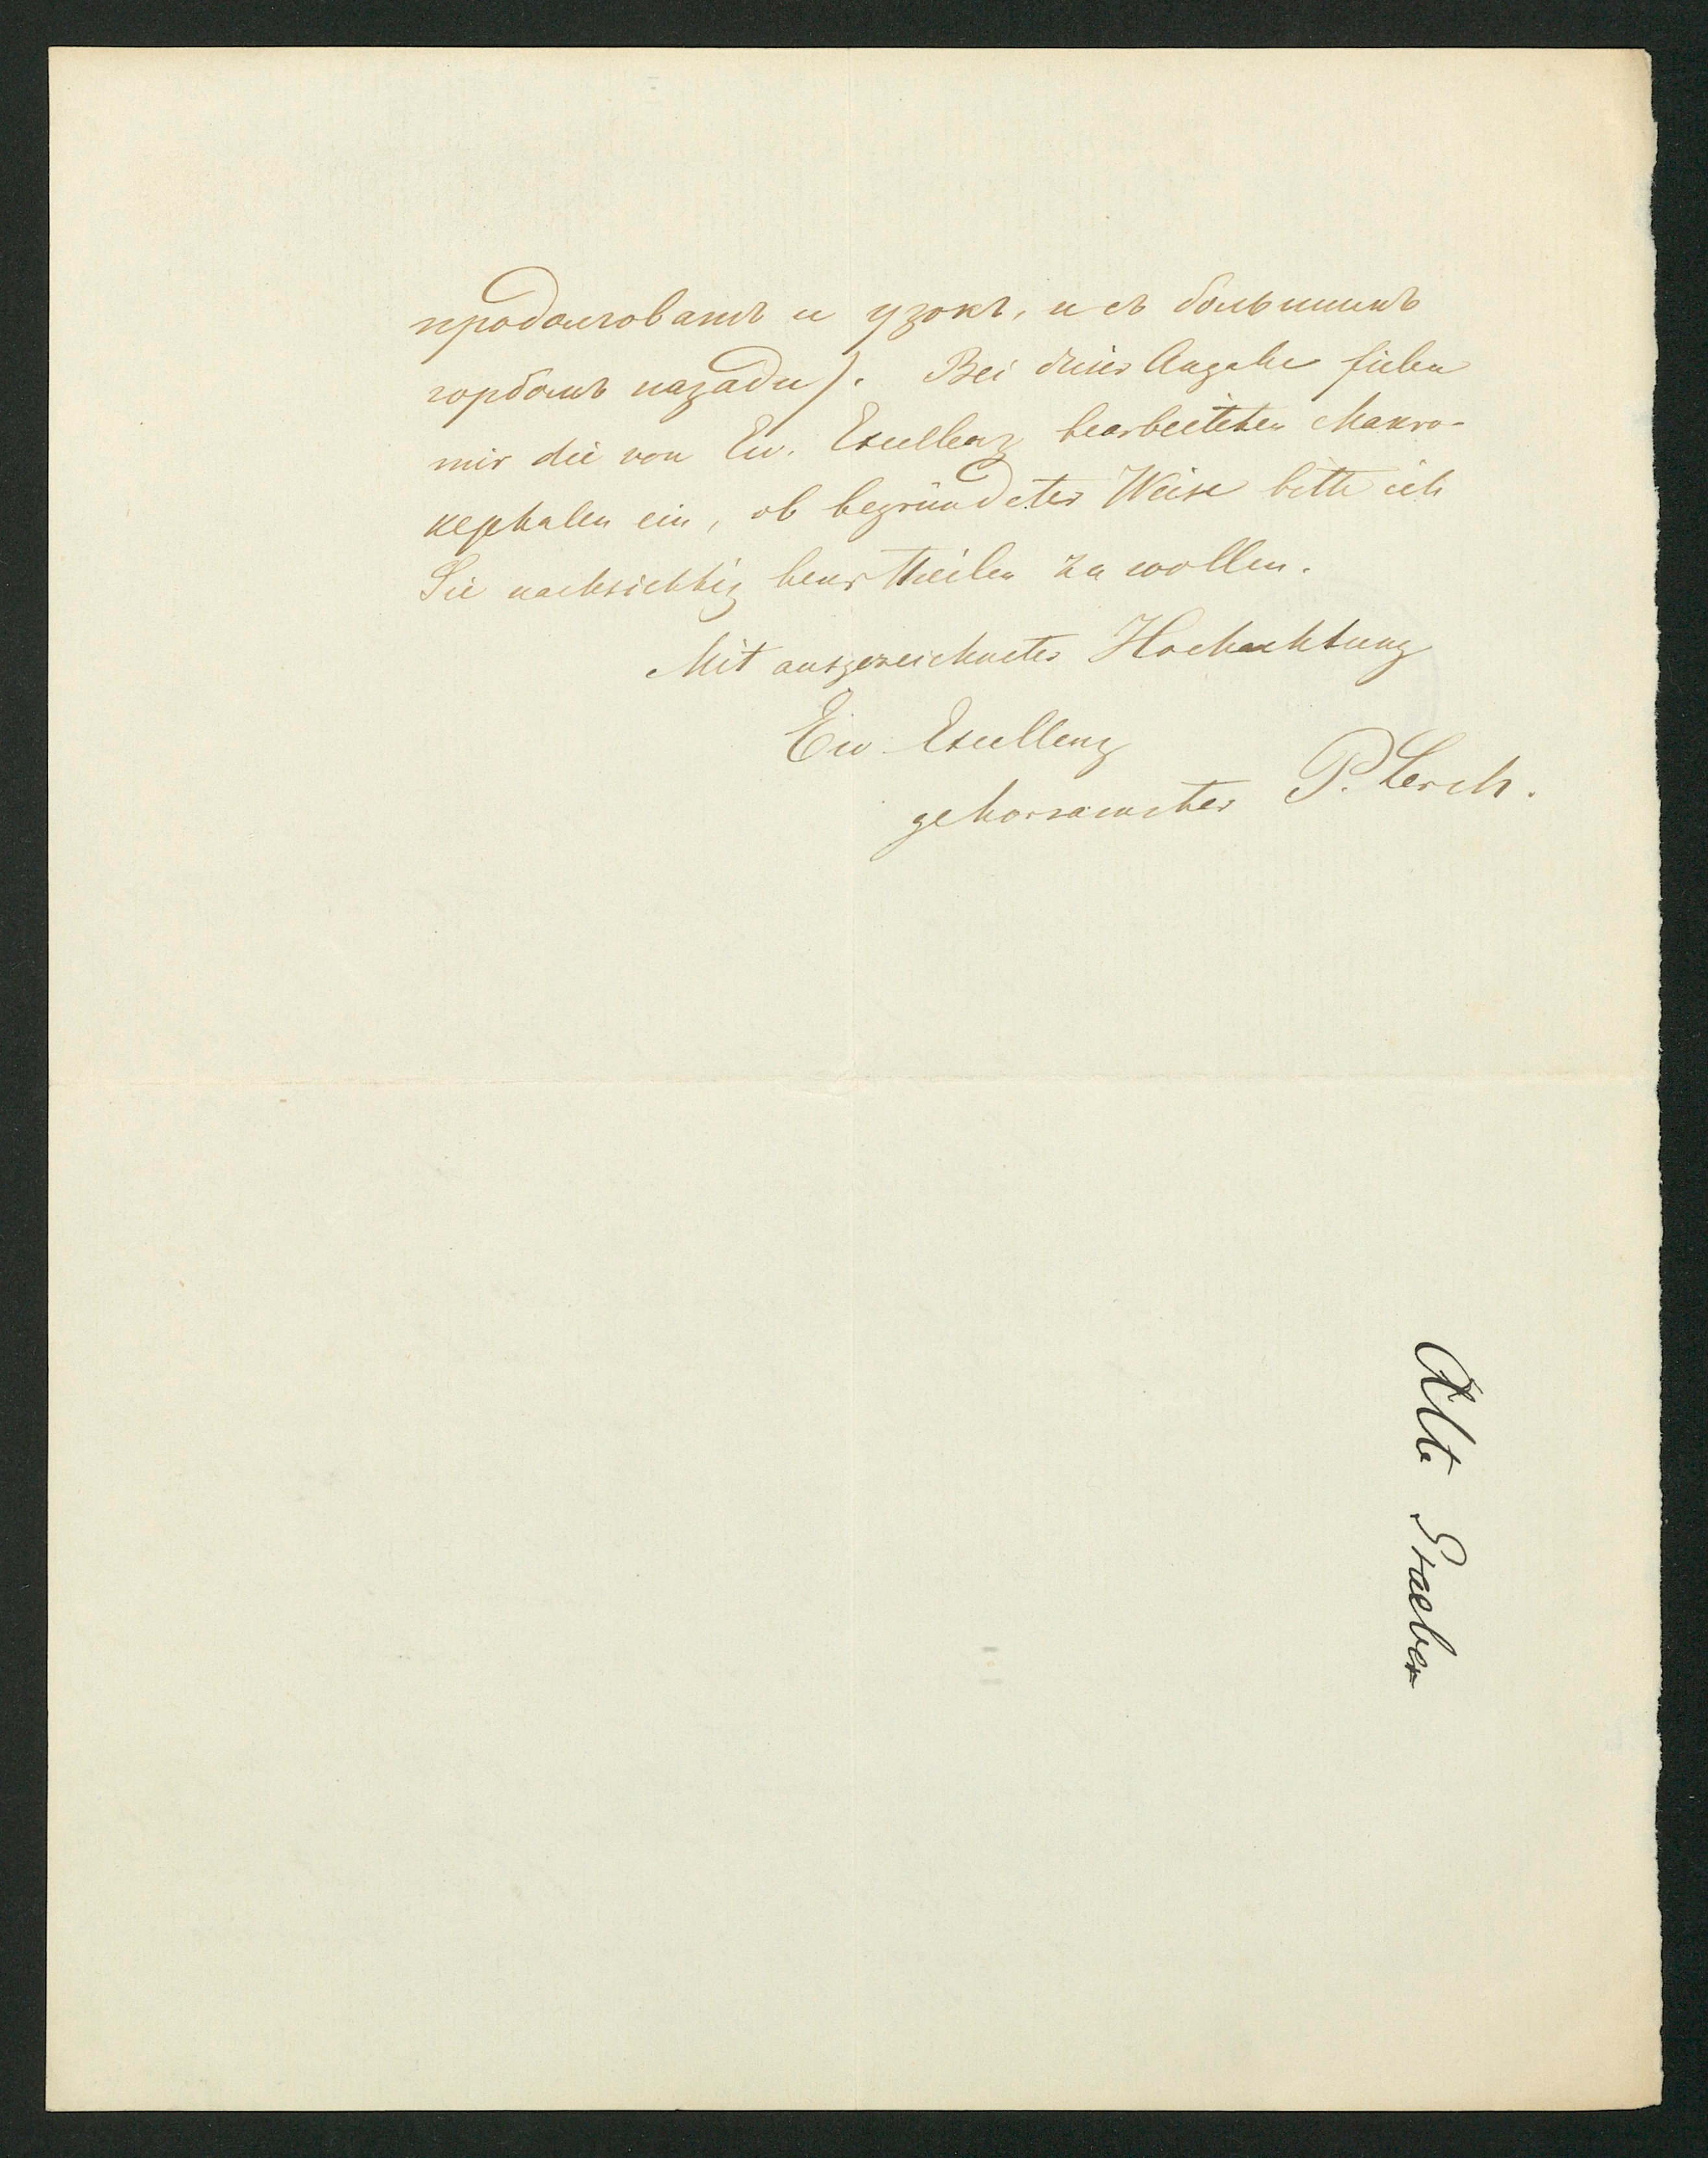 продолговатъ и узокъ, и съ большимъ
горбомъ назади). Bei dieser Angabe fielen
mir die von Ew. Excellenz bearbeiteten Makro-
kephalen ein, ob begründeter Weise bitte ich
Sie nachsichtig beurtheilen zu wollen.
Mit ausgezeichneter Hochachtung
Ew Excellenz
gehorsamster P. Lerch.
Alte Graeber